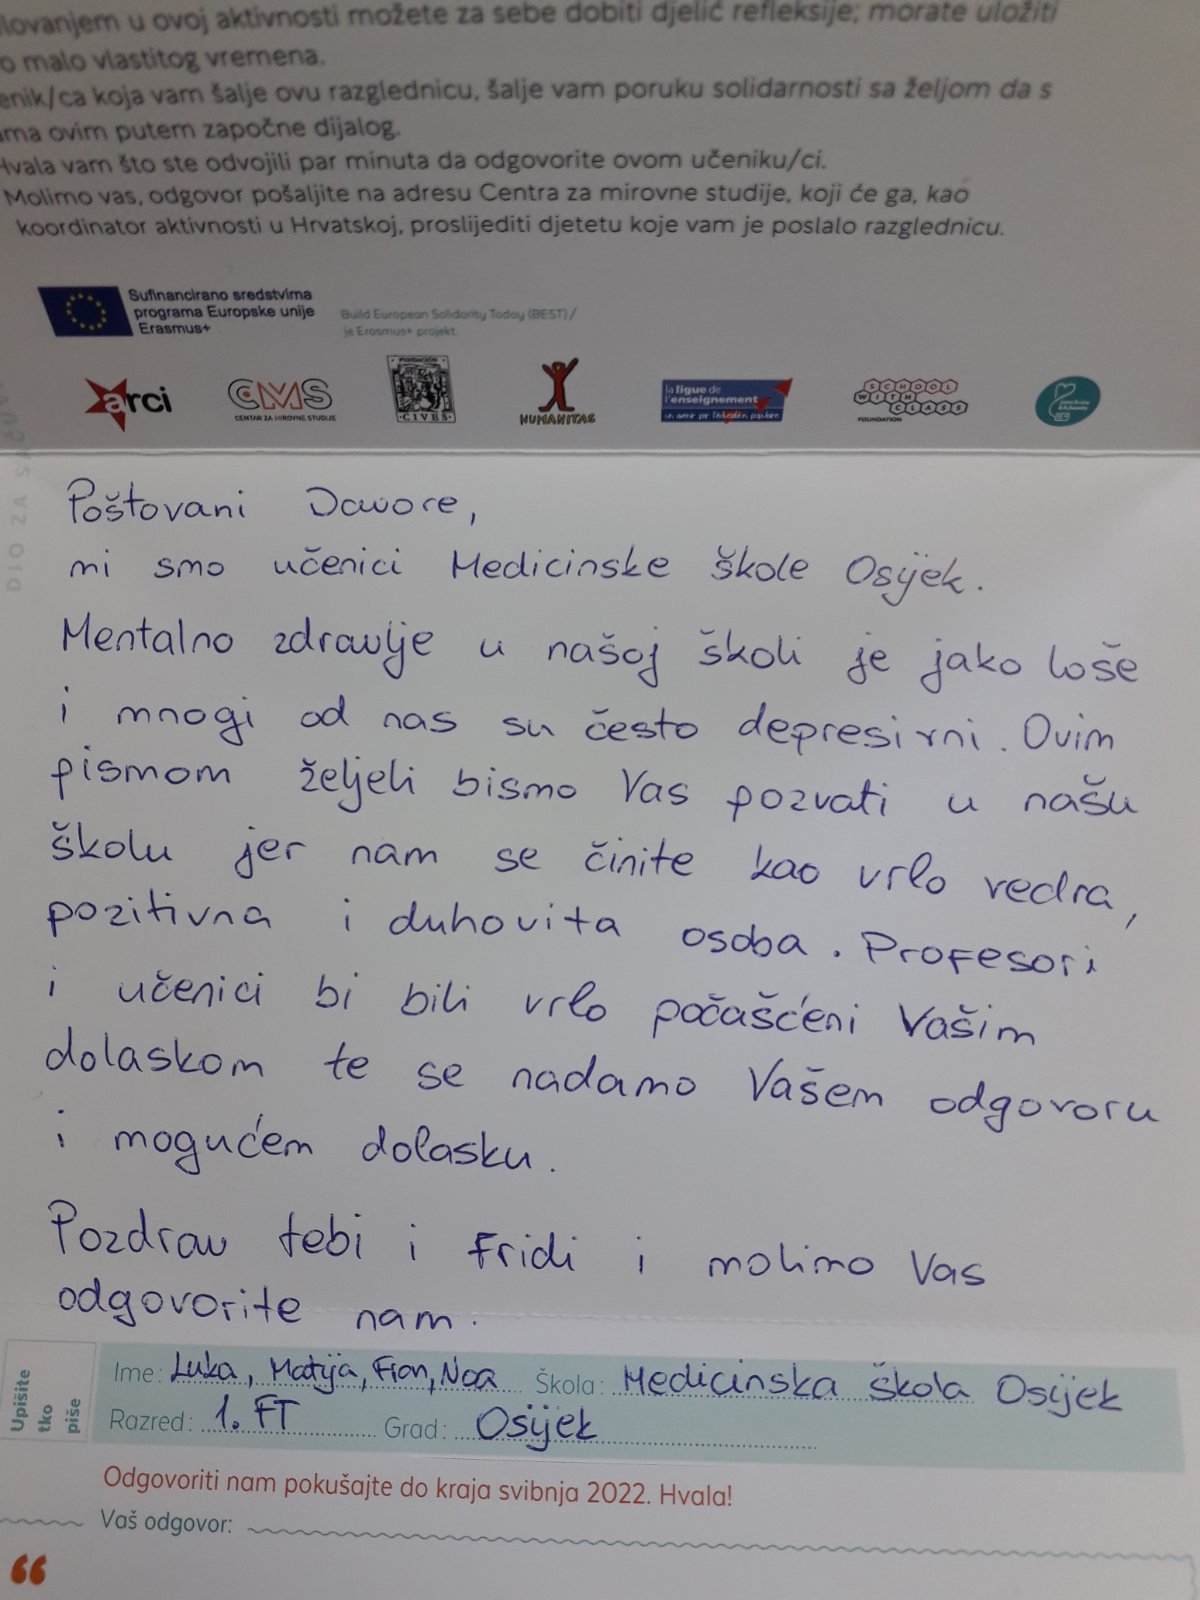 lovanjem u ovoj aktivnosti možete za sebe dobiti djelić refleksije; morate uložiti
o malo vlastitog vremena.
enik/ca koja vam šalje ovu razglednicu, šalje vam poruku solidarnosti sa željom da s
ama ovim putem započne dijalog.
Hvala vam što ste odvojili par minuta da odgovorite ovom učeniku/ci.
Molimo vas, odgovor pošaljite na adresu Centra za mirovne studije, koji će ga, kao
koordinator aktivnosti u Hrvatskoj, proslijediti djetetu koje vam je poslalo razglednicu.
Sufinancirano sredstvima
programa Europske unije
Erasmus+
Build European Solidarity Today (BEST)/
je Erasmus+ projekt.
arci
CMS
CENTAR ZA MIROVNE STUDIJE
FUNDACIÓN
CIVES
HUMANITAS
la ligue de
l'enseignement
un avenir par l'éducation populaire
SCHOOL
WITH
CLASS
FOUNDATION
DIO ZA
Poštovani Davore,
mi smo učenici Medicinske škole Osijek.
Mentalno zdravlje u našoj školi je jako loše
i mnogi od nas su često depresivni. Ovim
pismom željeli bismo Vas pozvati u našu
školu jer nam se činite kao vrlo vedra,
pozitivna i duhovita osoba. Profesori
i učenici bi bili vrlo počašćeni Vašim
dolaskom te se nadamo Vašem odgovoru
i mogućem dolasku.
Pozdrav tebi i Fridi i molimo Vas
odgovorite nam.
Upišite
tko
piše
Ime: Luka, Matija, Fran, Noa Škola: Medicinska škola Osijek
Razred: 1. FT Grad: Osijek
Odgovoriti nam pokušajte do kraja svibnja 2022. Hvala!
Vaš odgovor: